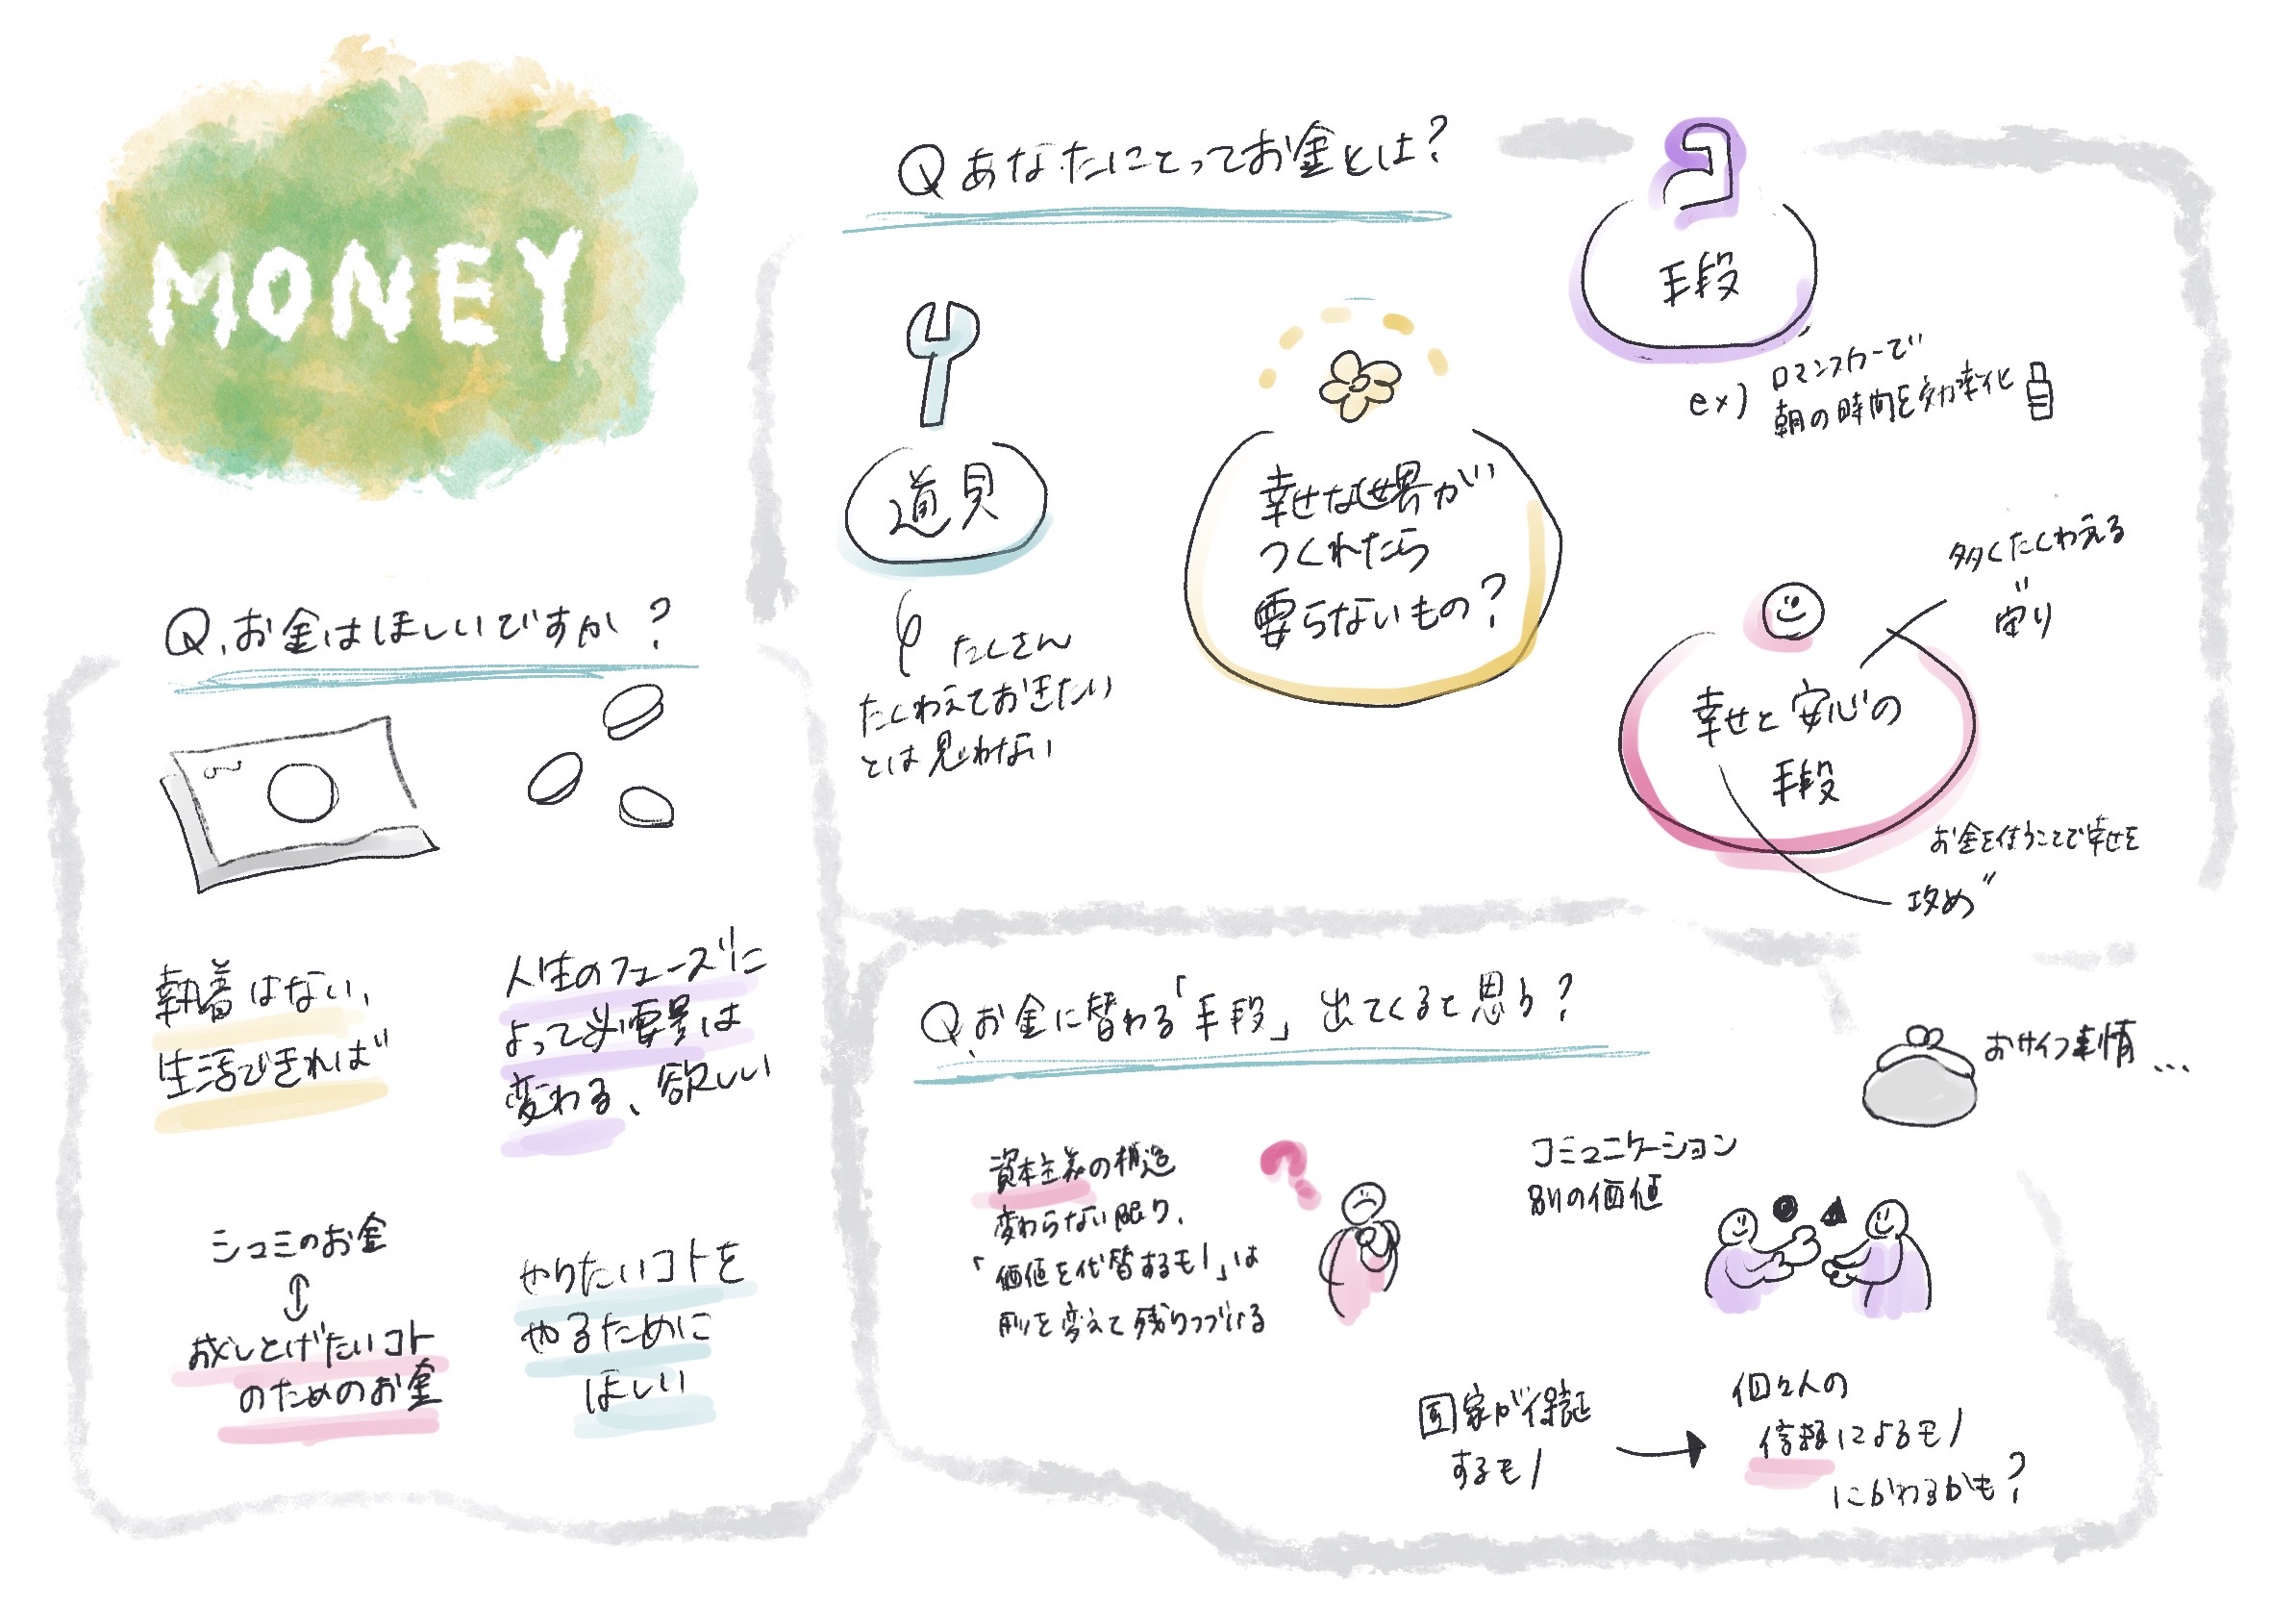 MONEY
Q あなたにとってお金とは?
道具
たくさん
たくわえておきたい
とは思わない
幸せな世界が
つくれたら
要らないもの?
手段
ex) ロマンスカーで
朝の時間を効率化
幸せと安心の
手段
多くたくわえる
守り
お金を使うことで幸せを
攻め
Q.お金はほしいですか?
執着はない、
生活できれば
人生のフェーズに
よって必要量は
変わる、欲しい
シュミのお金
↕
成しとげたいコト
のためのお金
やりたいコトを
やるために
ほしい
Q.お金に替わる「手段」出てくると思う?
おサイフ事情...
資本主義の構造
変わらない限り、
「価値を代替するモノ」は
形を変えて残りつづける
?
コミュニケーション
別の価値
国家が保証
するモノ
→
個々人の
信頼によるモノ
にかわるかも?